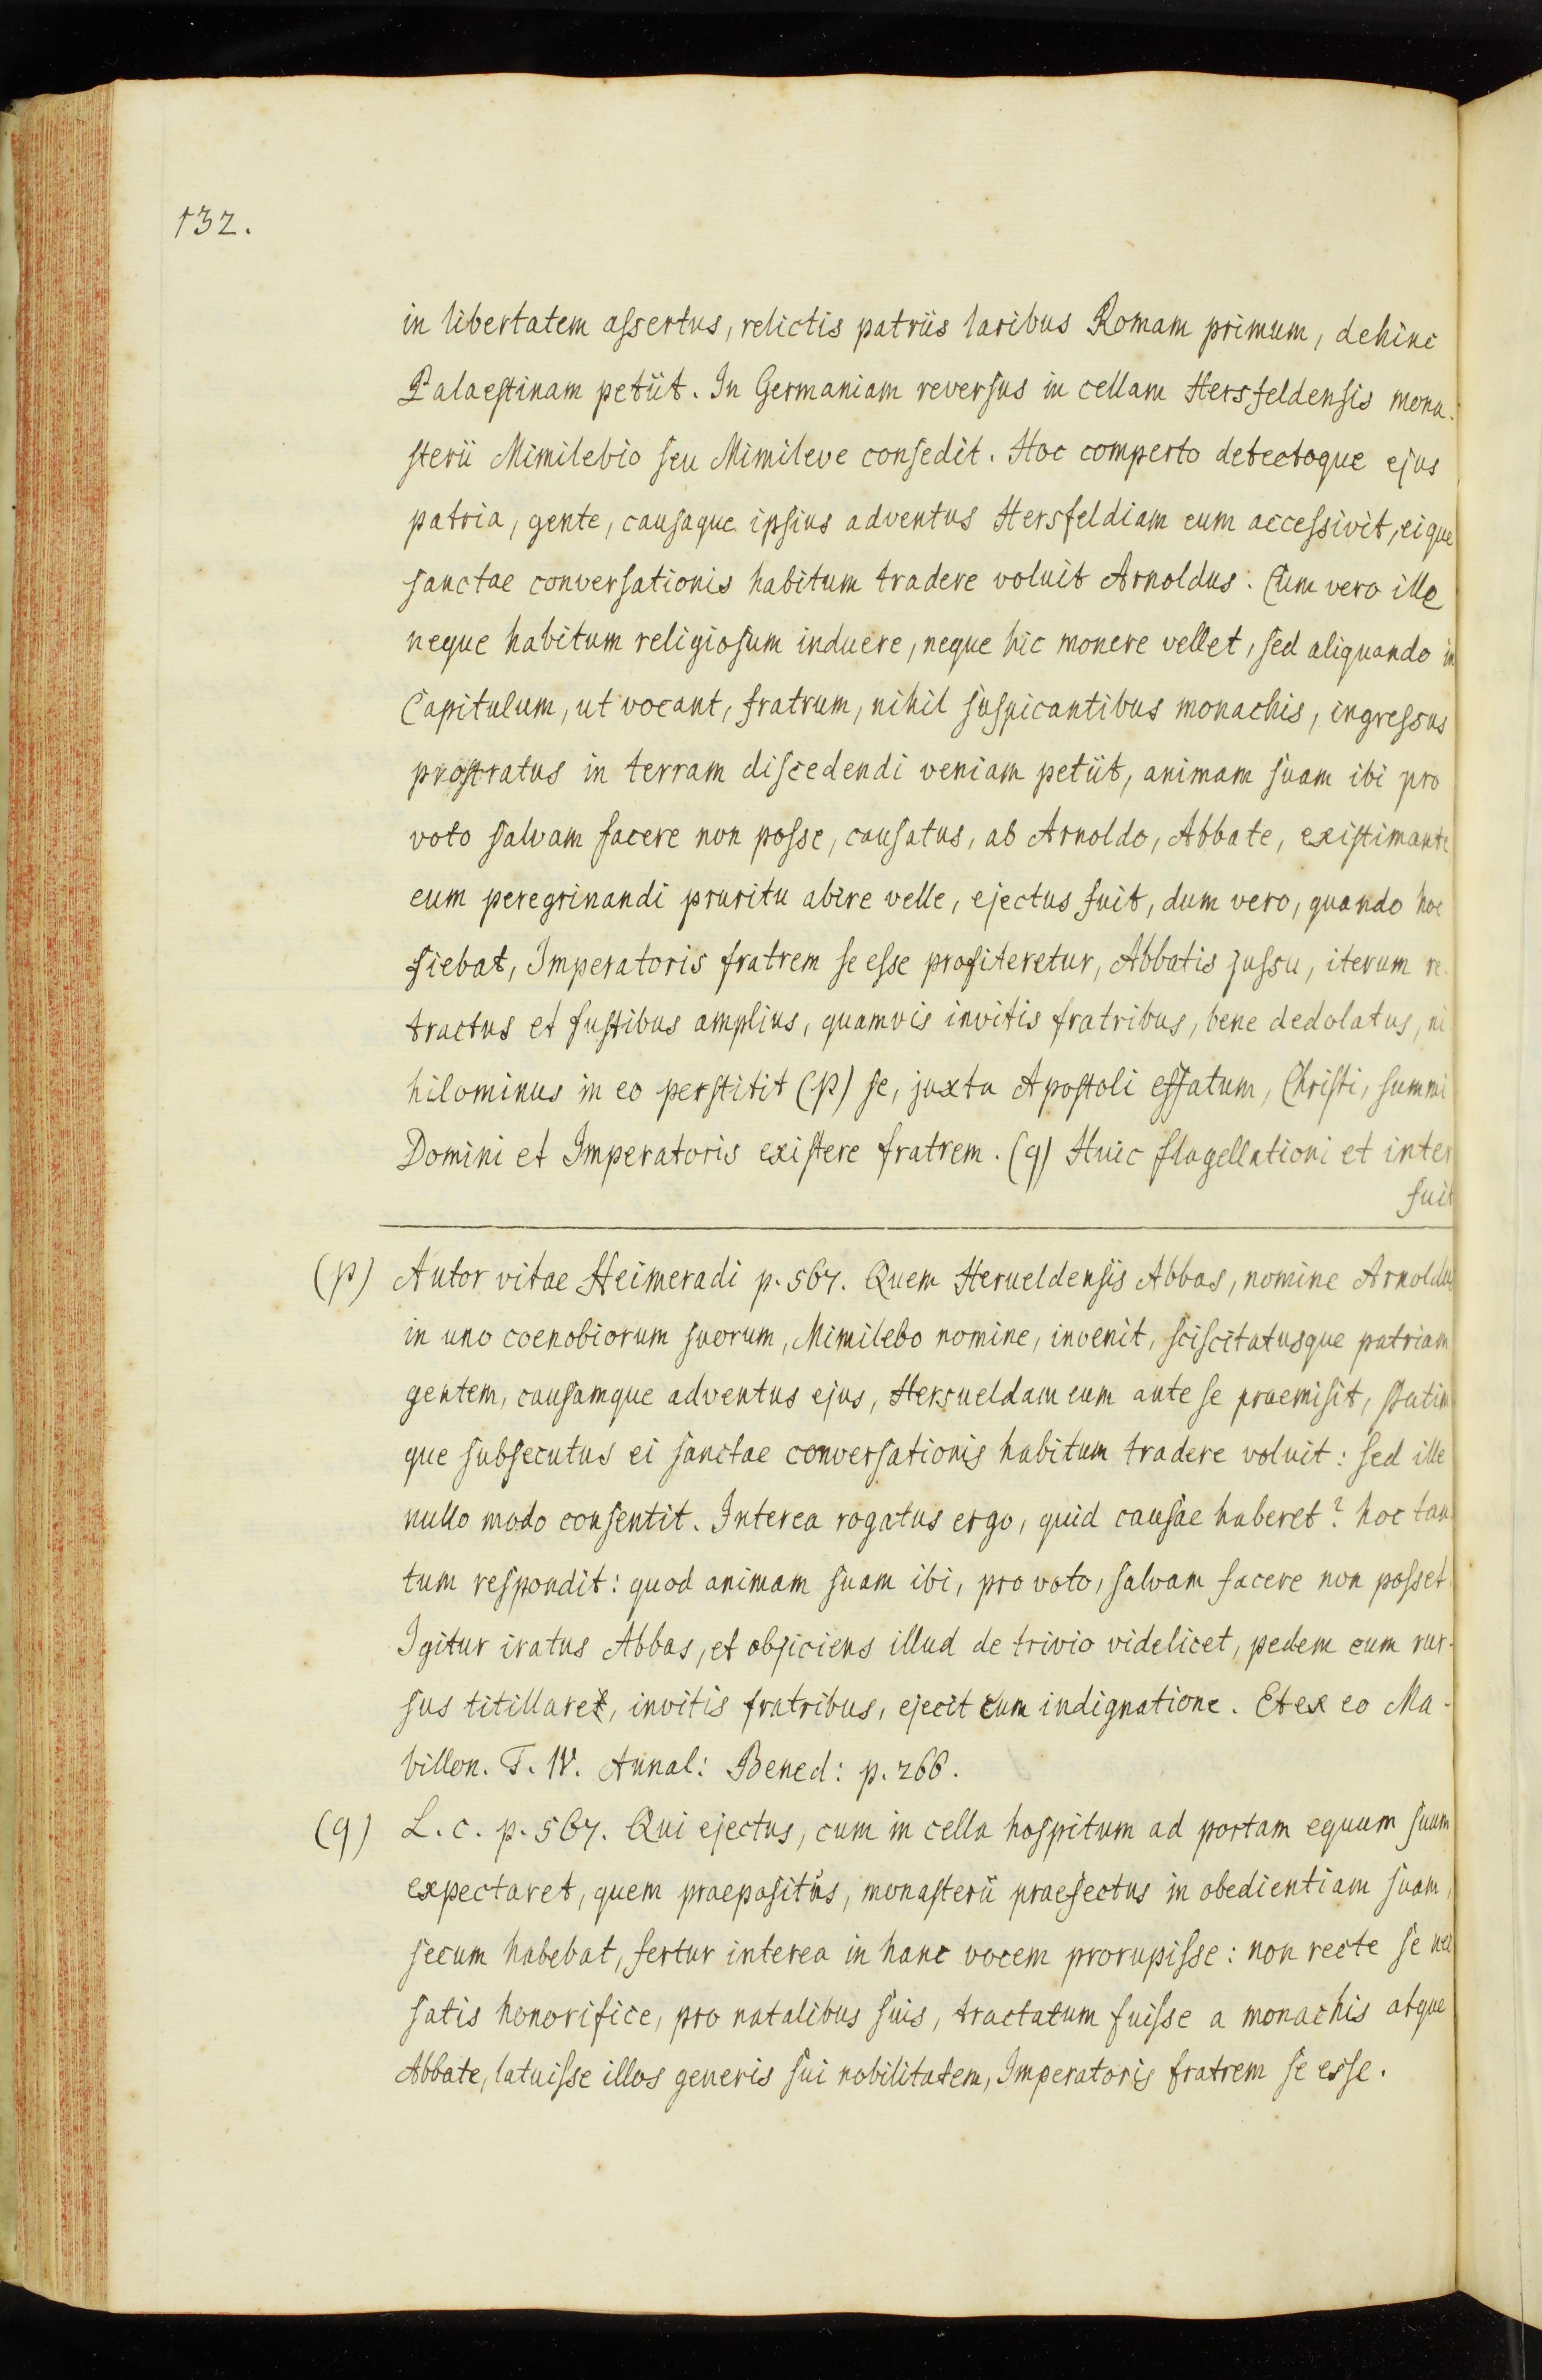 132.
in libertatem assertus, relictis patriis laribus Romam primum, dehinc
Palaestinam petiit. In Germaniam reversus in cellam Hersfeldensis mona-
sterii Mimilebio seu Mimileve consedit. Hoc comperto detectoque ejus
patria, gente, causaque ipsius adventus Hersfeldiam eum accessivit, eique
sanctae conversationis habitum tradere voluit Arnoldus. Cum vero ille
neque habitum religiosum induere, neque hic monere vellet, sed aliquando in
Capitulum, ut vocant, fratrum, nihil suspicantibus monachis, ingressus
prostratus in terram discedendi veniam petiit, animam suam ibi pro
voto salvam facere non posse, causatus, ab Arnoldo, Abbate, existimante
eum peregrinandi pruritu abire velle, ejectus fuit, dum vero, quando hoc
fiebat, Imperatoris fratrem se esse profiteretur, Abbatis jussu, iterum re-
tractus et fustibus amplius, quamvis invitis fratribus, bene dedolatus, ni
hilominus in eo perstitit (p) se, juxta Apostoli effatum, Christi, summi
Domini et Imperatoris existere fratrem. (q) Huic flagellationi et inter
fuit
(p) Autor vitae Heimeradi p. 567. Quem Herueldensis Abbas, nomine Arnoldus
in uno coenobiorum suorum, Mimilebo nomine, invenit, sciscitatusque patriam
gentem, causamque adventus ejus, Hersueldam eum ante se praemisit, statim
que subsecutus ei sanctae conversationis habitum tradere voluit: sed ille
nullo modo consentit. Interea rogatus ergo, quid causae haberet? hoc tan
tum respondit: quod animam suam ibi, pro voto, salvam facere non posset
Igitur iratus Abbas, et objiciens illud de trivio videlicet, pedem eum rur-
sus titillaret, invitis fratribus, ejecit cum indignatione. Et ex eo Ma-
billon. T. IV. Annal: Bened: p. 266.
(q) L. c. p. 567. Qui ejectus, cum in cella hospitum ad portam equum suum
expectaret, quem praepositus, monasterii praefectus in obedientiam suam,
secum habebat, fertur interea in hanc vocem prorupisse: non recte se nec
satis honorifice, pro natalibus suis, tractatum fuisse a monachis atque
Abbate, latuisse illos generis sui nobilitatem, Imperatoris fratrem se esse.